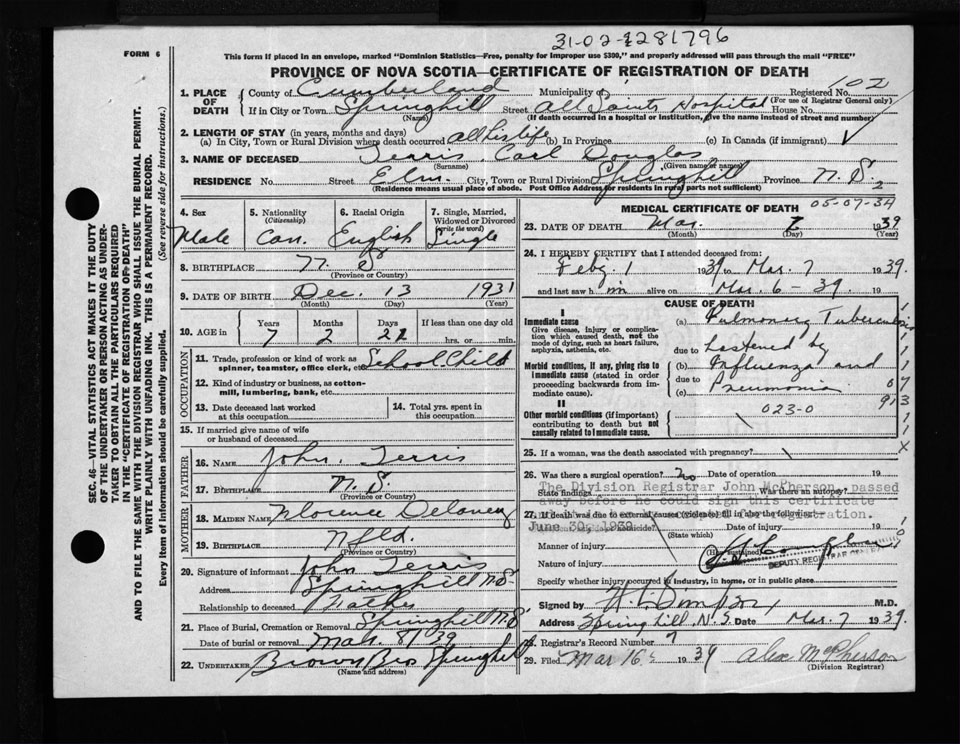 31-02-281796
FORM 6
This form if placed in an envelope, marked "Dominion Statistics—Free, penalty for improper use $300," and properly addressed will pass through the mail "FREE"
PROVINCE OF NOVA SCOTIA—CERTIFICATE OF REGISTRATION OF DEATH
1. PLACE OF DEATH
County of Cumberland Municipality of Registered No. 102
(For use of Registrar General only)
If in City or Town Springhill Street All Saints Hospital House No.
(Name) (If death occurred in a hospital or institution, give the name instead of street and number)
2. LENGTH OF STAY (in years, months and days)
(a) In City, Town or Rural Division where death occurred all his life (b) In Province (c) In Canada (if immigrant)
3. NAME OF DECEASED Terris Carl Douglas
(Surname) (Given name or names)
RESIDENCE No. Street Elm City, Town or Rural Division Springhill Province N.S. 2
(Residence means usual place of abode. Post Office Address for residents in rural parts not sufficient)
4. Sex Male
5. Nationality (Citizenship) Can.
6. Racial Origin English
7. Single, Married, Widowed or Divorced (write the word) Single
8. BIRTHPLACE N S
(Province or Country)
9. DATE OF BIRTH Dec. 13 1931
(Month) (Day) (Year)
10. AGE in Years Months Days If less than one day old
7 2 hrs. or min.
OCCUPATION
11. Trade, profession or kind of work as spinner, teamster, office clerk, etc. School Child
12. Kind of industry or business, as cotton-mill, lumbering, bank, etc.
13. Date deceased last worked at this occupation
14. Total yrs. spent in this occupation
15. If married give name of wife or husband of deceased
FATHER
16. NAME John Terris
17. Birthplace N. S.
(Province or Country)
MOTHER
18. MAIDEN NAME Florence Delaney
19. BIRTHPLACE Nfld.
(Province or Country)
20. Signature of informant John Terris
Address Springhill N.S.
Relationship to deceased Father
21. Place of Burial, Cremation or Removal Springhill N.S.
Date of burial or removal Mar. 8/39
22. UNDERTAKER Brown Bro Springhill
(Name and address)
MEDICAL CERTIFICATE OF DEATH
05-07-34
23. DATE OF DEATH Mar. 7 1939
(Month) (Day) (Year)
24. I HEREBY CERTIFY that I attended deceased from
Feby. 1 1939 to Mar. 7 1939.
and last saw him alive on Mar. 6-39. 19
CAUSE OF DEATH
I
Immediate cause
Give disease, injury or complication which caused death, not the mode of dying, such as heart failure, asphyxia, asthenia, etc.
(a) Pulmonary Tuberculosis
due to hastened by
Morbid conditions, if any, giving rise to immediate cause (stated in order proceeding backwards from immediate cause).
(b) Influenza and
due to Pneumonia
(c)
II
Other morbid conditions (if important) contributing to death but not causally related to immediate cause.
023-0
25. If a woman, was the death associated with pregnancy?
26. Was there a surgical operation? No Date of operation 19
State findings Was there an autopsy?
The Division Registrar John McPherson, passed
away before he could sign this certificate
27. If death was due to external causes (violence) fill in also the following:
of registration.
June 30, 1939 Date of injury 19
(State which)
Manner of injury
Nature of injury (How sustained)
DEPUTY REGISTRAR GENERAL
Specify whether injury occurred in industry, in home, or in public place
Signed by M.D.
Address Springhill, N.S. Date Mar. 7 1939.
28. Registrar's Record Number 7
29. Filed Mar 16 1939 Alex McPherson
(Division Registrar)
SEC. 46—VITAL STATISTICS ACT MAKES IT THE DUTY
OF THE UNDERTAKER OR PERSON ACTING AS UNDERTAKER TO OBTAIN ALL THE PARTICULARS REQUIRED
IN THE "CERTIFICATE OF REGISTRATION OF DEATH"
AND TO FILE THE SAME WITH THE DIVISION REGISTRAR WHO SHALL ISSUE THE BURIAL PERMIT.
WRITE PLAINLY WITH UNFADING INK. THIS IS A PERMANENT RECORD.
Every item of information should be carefully supplied. (See reverse side for instructions.)